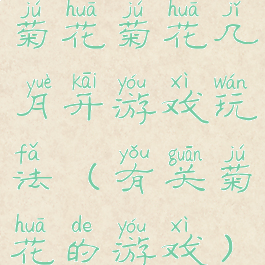 jú huā jú huā jǐ
菊花菊花几
yuè kāi yóu xì wán
月开游戏玩
fǎ yǒu guān jú
法（有关菊
huā de yóu xì
花的游戏）